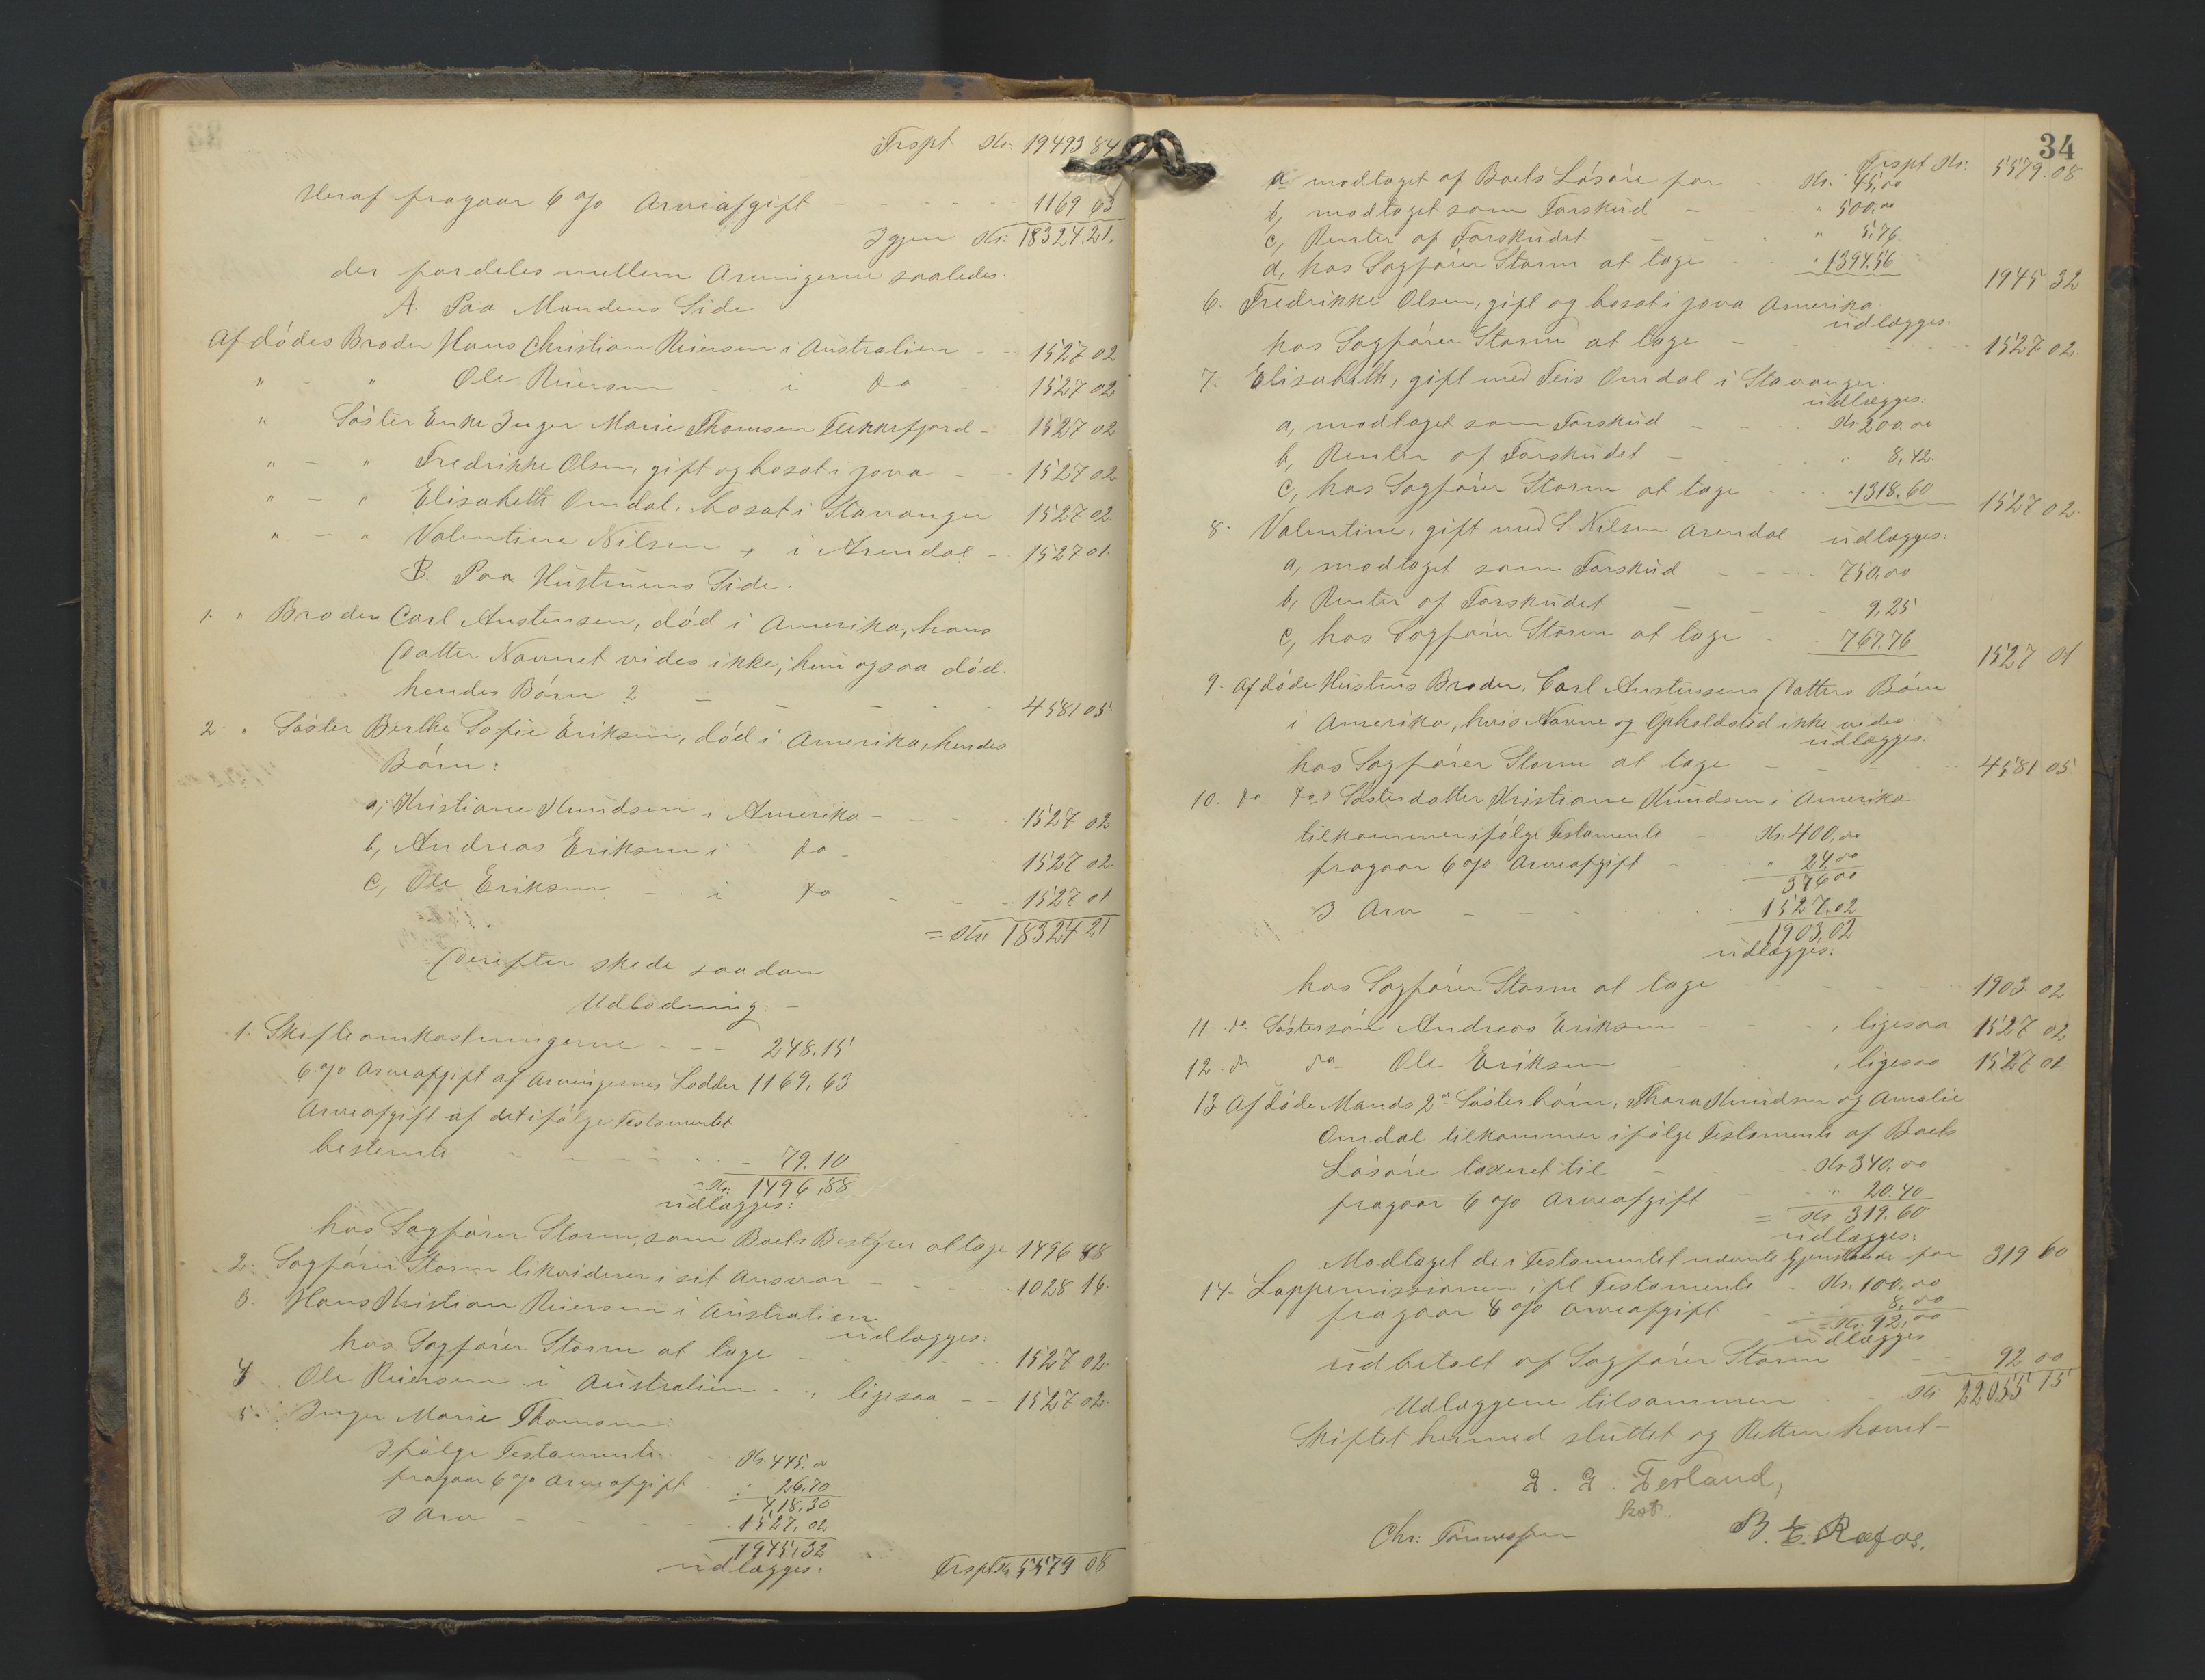 Trspt Kr. 19493 84
Heraf fragaar 6 o/o Arveafgift - - - - - 1169 63
Igjen Kr. 18324.21.
der fordeles mellem Arvingerne saaledes.
A. Paa Mandens Side
Afdödes Broder Hans Christian Reiersen i Australien - - 1527 02
" - " Ole Reiersen - i do - 1527 02
" Söster Enke Inger Marie Thomsen Flekkefjord - - 1527 02
" - " Fredrikke Olsen, gift og bosat i jova - - - 1527 02
" - " Elisabeth Omdal, bosat i Stavanger - 1527 02
" - " Valentine Nilsen, i Arendal - 1527 01.
B. Paa Hustruens Side.
1. " Broder Carl Austensen, död i Amerika, hans
Datter Navnet vides ikke, hun ogsaa död.
hendes Börn ? - - - - - 4581 05.
2. " Söster Berthe Sofie Eriksen, död i Amerika, hendes
Börn:
a, Kristiane Knudsen i Amerika - - - - 1527 02
b, Andreas Eriksen i do - 1527 02.
c, Ole Eriksen - - i do - - - 1527 01
= Kr. 18324 21
Derefter skede saadan
Udlodning: -
1. Skifteomkostningerne - - - 248.15
6 o/o Arveafgift af Arvingernes Lodder 1169.63
Arveafgift af det ifölge Testamentet
bestemte - - - - - - 79.10
= Kr. 1496,88
udlægges:
hos Sagförer Storm, som Boets Bestyrer at tage 1496 88
2. Sagförer Storm likviderer i sit Ansvar - - - - 1028 16.
3. Hans Kristian Reiersen i Australien
udlægges:
hos Sagförer Storm at tage - - - - - 1527 02.
4 Ole Reiersen i Australien - , ligesaa - - - 1527 02.
5. Inger Marie Thomsen:
Ifölge Testamente - Kr. 445,00
fragaar 6 o/o Arveafgift - " 26,70
418,30
I Arv - - - - 1527,02
1945,32
udlægges:
Trspt Kr 5579 08
34
Trspt Kr. 5579.08
a modtaget af Boets Lösöre for - Kr. 45,00
b, modtaget som Forskud - " 500,00
c, Renter af Forskudet - - " 5,76.
d, hos Sagförer Storm at tage - - " 1394.56 1945 32
6. Fredrikke Olsen, gift og bosat i jova Amerika.
udlægges:
hos Sagförer Storm at tage - - - - - 1527 02.
7. Elisabeth, gift med Teis Omdal i Stavanger.
udlægges:
a, modtaget som Forskud - - - Kr. 200.00
b, Renter af Forskudet - - - " 8,42.
c, hos Sagförer Storm at tage - - - " 1318.60 1527 02.
8. Valentine, gift med S. Nilsen Arendal udlægges:
a, modtaget som Forskud - - - - 750,00
b, Renter af Forskudet - - - 9,25
c, hos Sagförer Storm at tage - - 767.76 1527 01
9. Afdöde Hustrus Broder, Carl Austensens Datters Börn
i Amerika, hvis Navne og Opholdsted ikke vides.
udlægges:
hos Sagförer Storm at tage - - - - 4581 05.
10. do do Sösterdatter Kristiane Knudsen i Amerika
tilkommer ifölge Testamente - - - Kr. 400,00
fragaar 6 o/o Arveafgift - - " 24,00
376 00
I Arv - - - - 1527,02
1903,02
udlægges:
hos Sagförer Storm at tage - - - - - 1903. 02
11. - do Söstersön Andreas Eriksen - - , ligesaa 1527 02
12. do do - Ole Eriksen - - , ligesaa 1527 01
13 Afdöde Mands 2de Lösterbörn, Thora Knudsen og Amalie
Omdal tilkommer ifölge Testamente af Boets
Lösöre taxeret til - - - Kr 340.00
fragaar 6 o/o Arveafgift - " 20.40
= Kr 319.60
udlægges:
Modtaget de i Testamentet nævnte Gjenstande for 319 60
14. Lappemissionen ifl Testamente - Kr. 100.00
fragaar 8 o/o Arveafgift - - 8,00
= Kr. 92,00
udlægges
udbetalt af Sagförer Storm - - 92 00
Udlæggene tilsammen - Kr 22055 15
Skiftet hermed sluttet og Retten hævet -
E. G. Ferland,
kst.
Chr. Tönnessen B. E. Røfos.